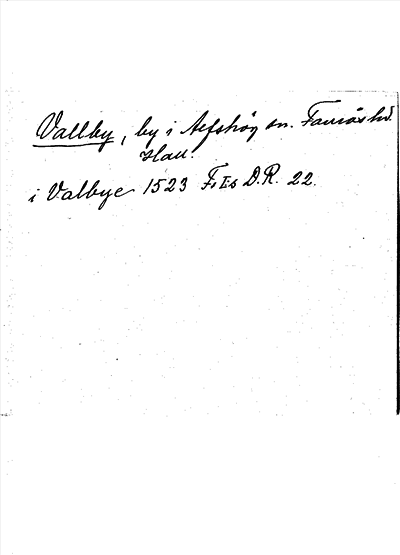 Vallby, by i Aefshög sn. Faurås hd.
Hall.
i Valbye 1523 F. I:s D.R. 22.